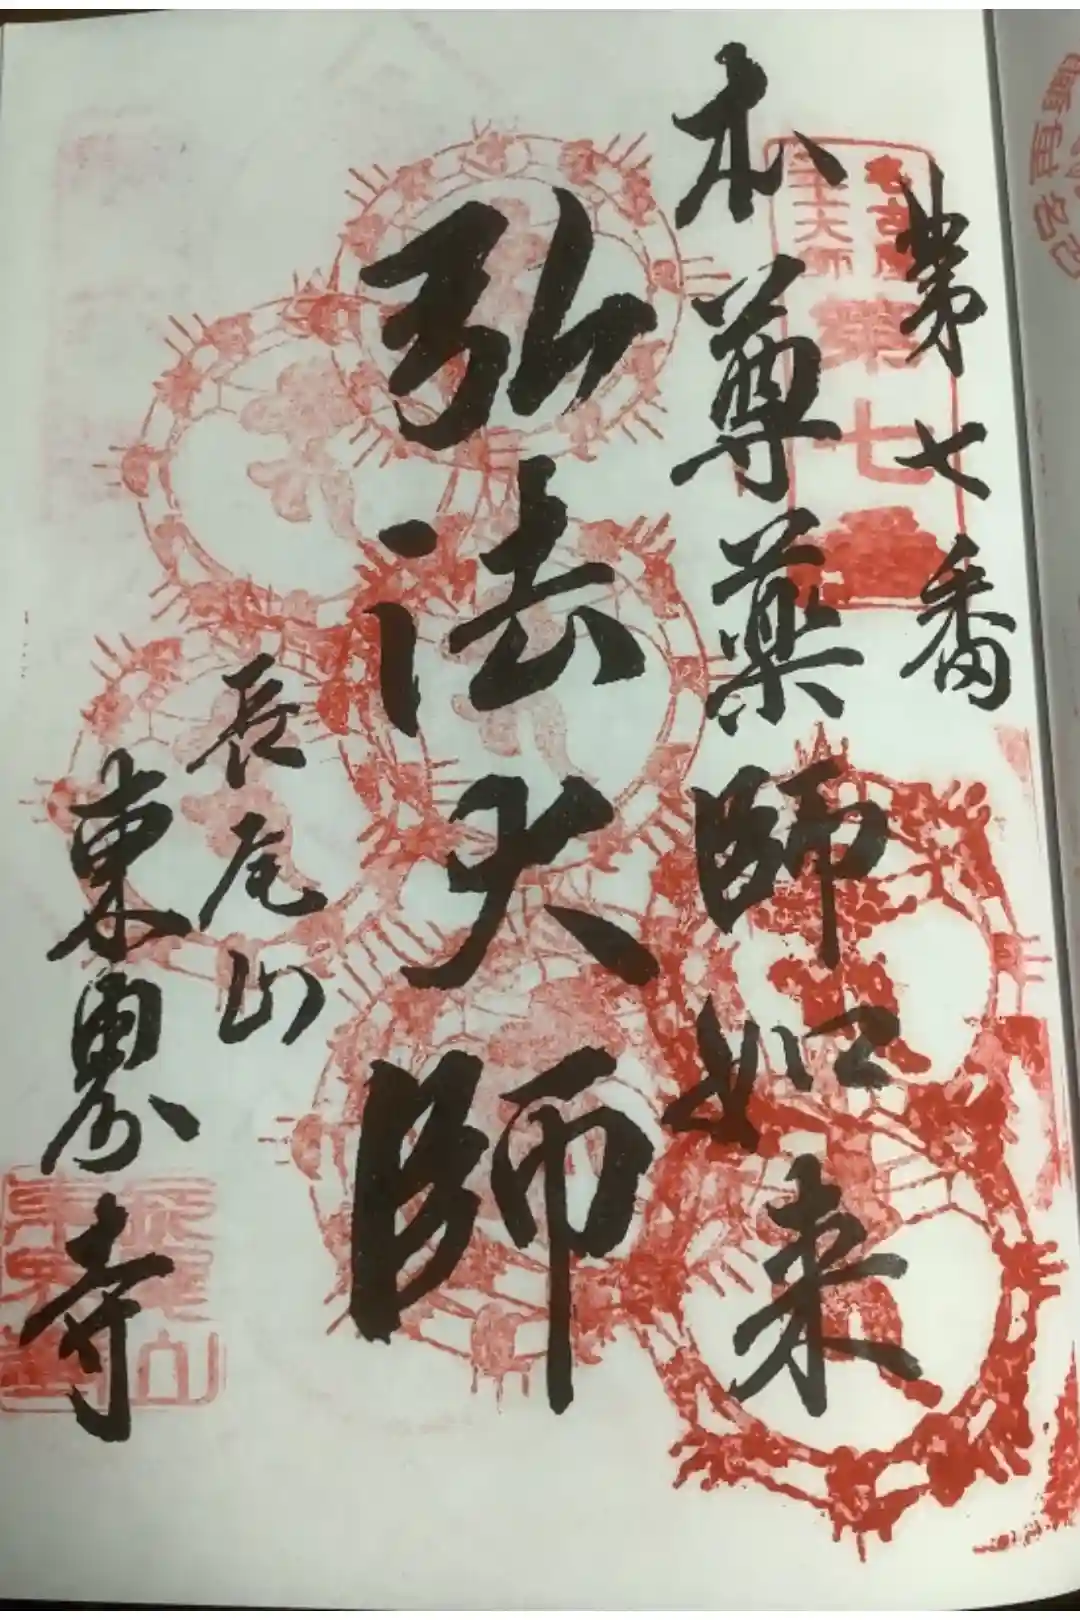 第七番
本尊薬師如来
弘法大師
長尾山
東界寺
名古屋
第七番
長尾山
東界寺